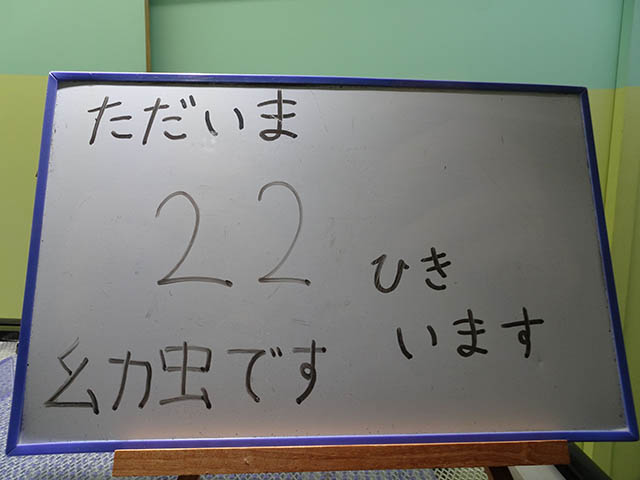 ただいま
22
ひき
います
幼虫です